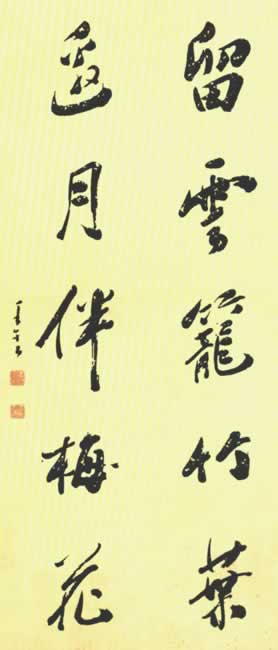 留雲籠竹葉
邀月伴梅花